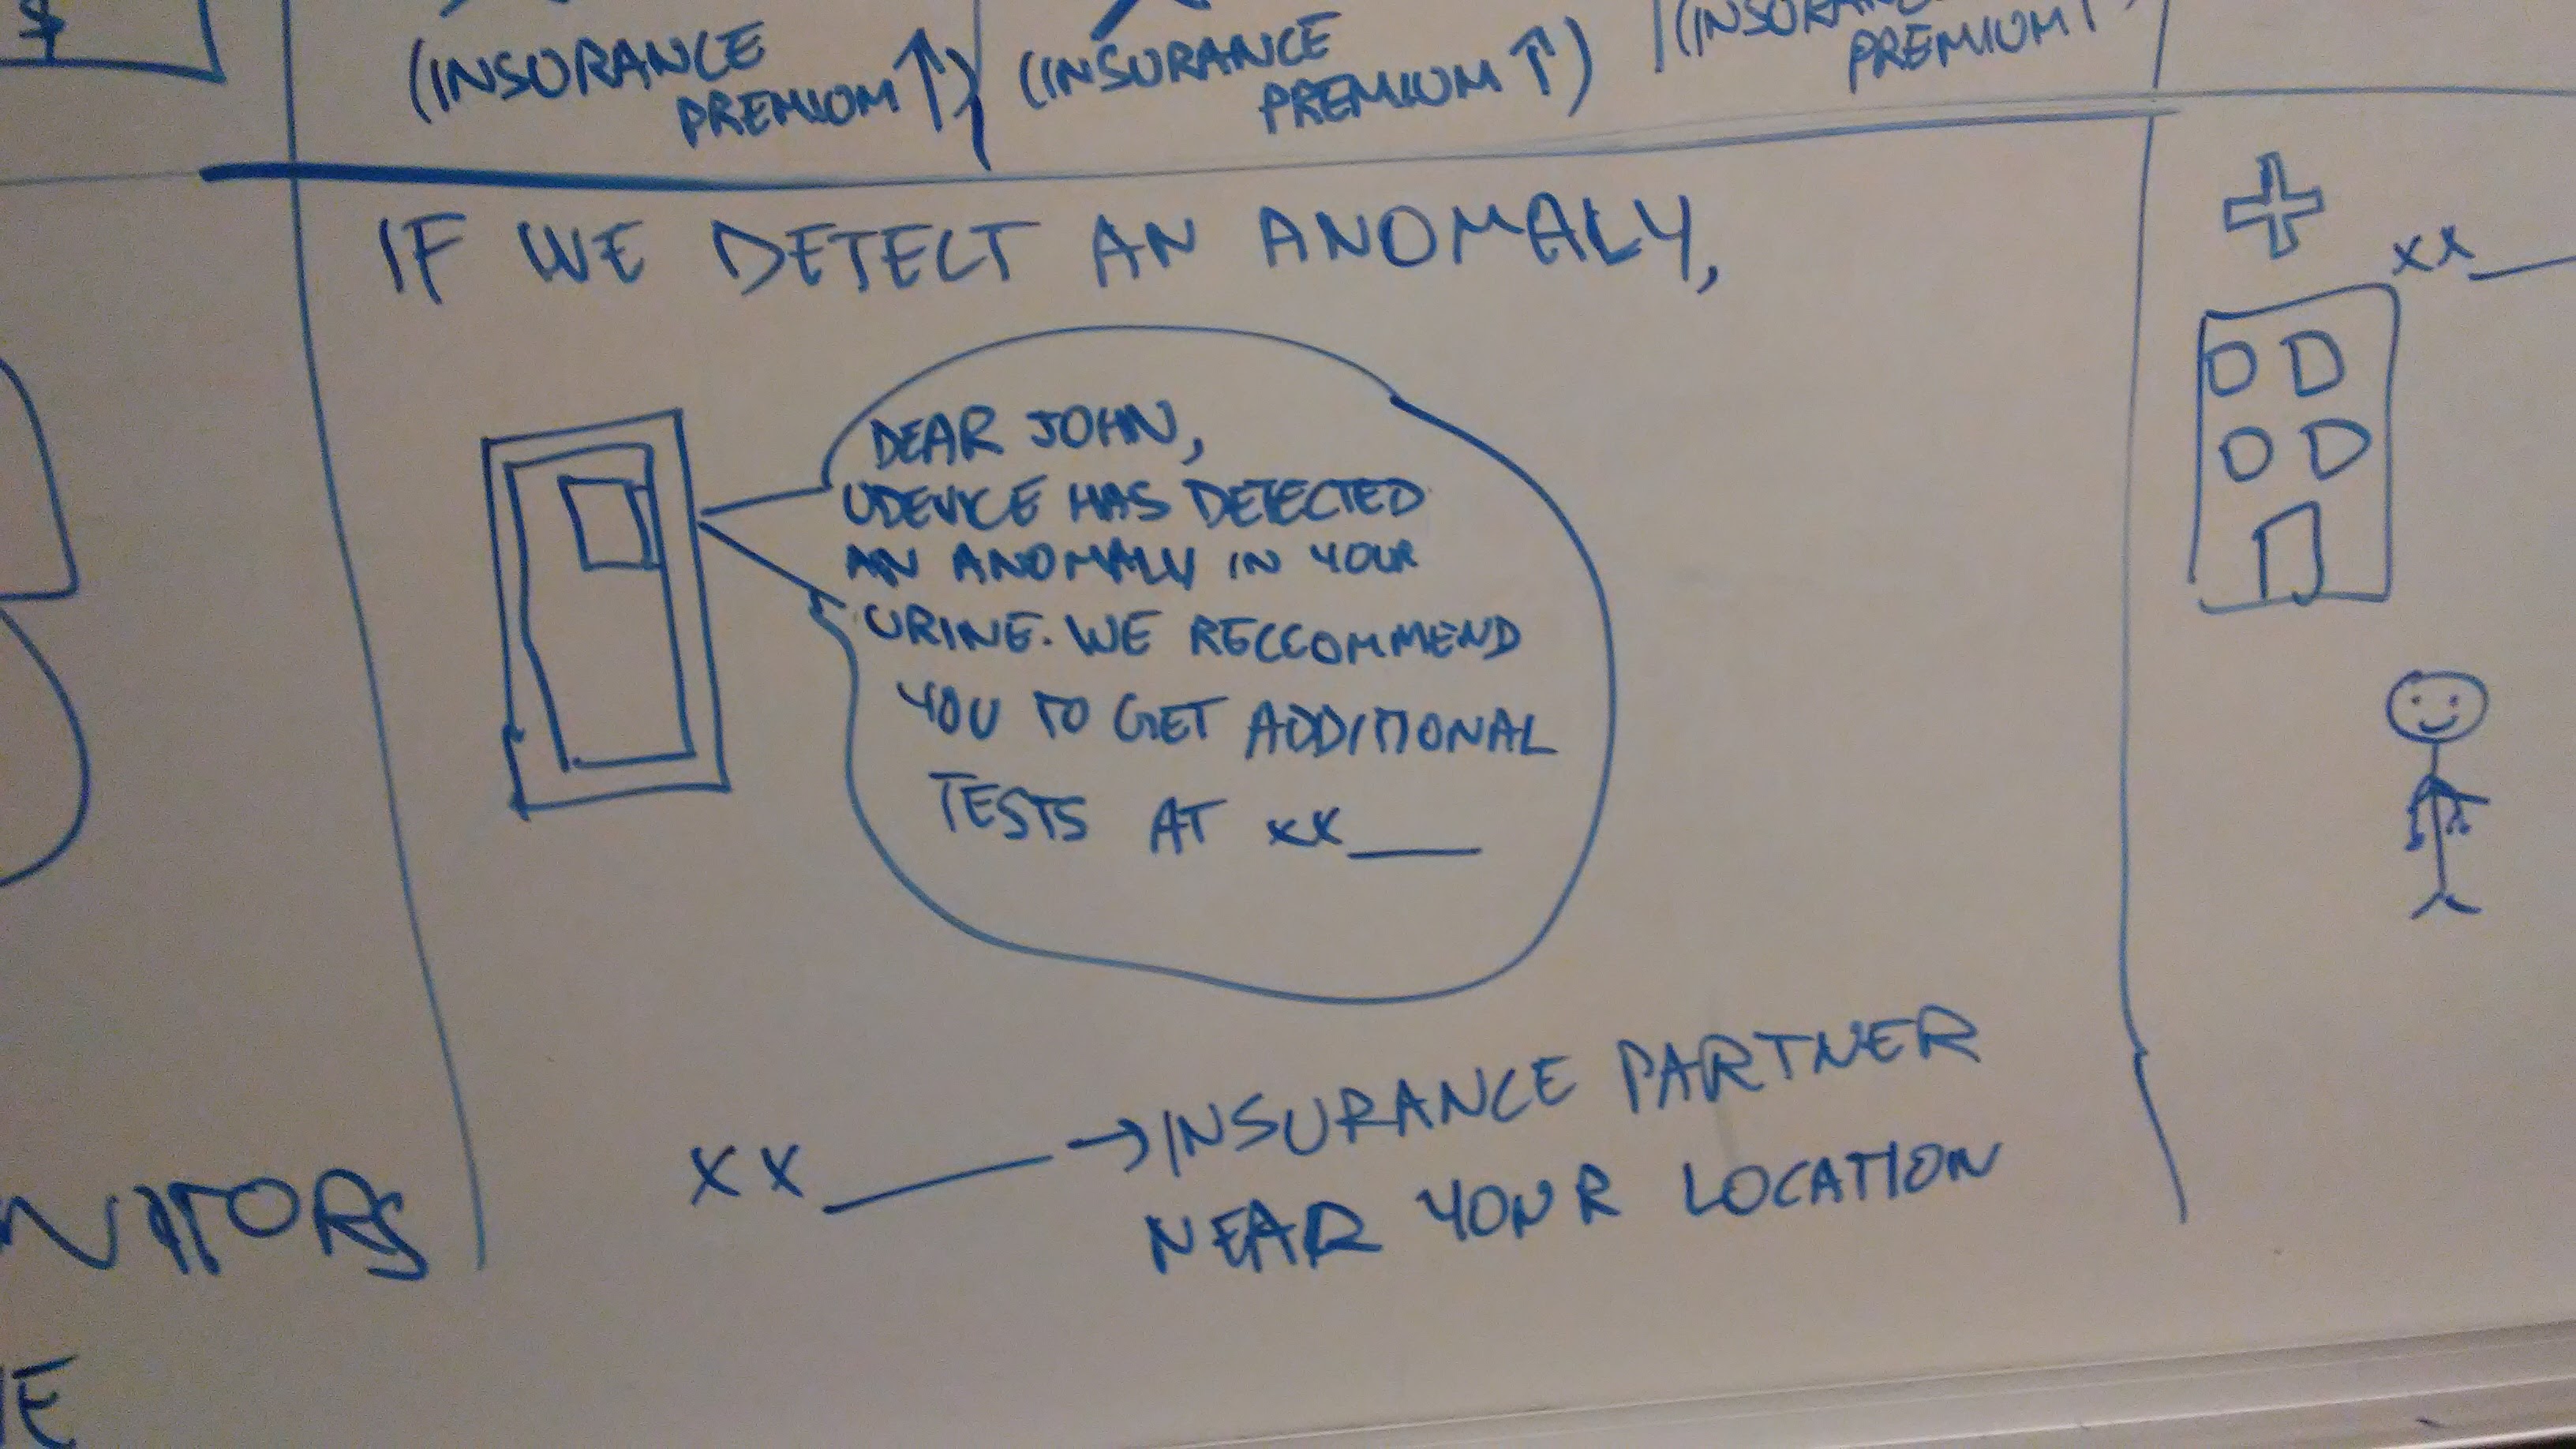 $
(INSURANCE
PREMIUM ↑)
(INSURANCE
PREMIUM ↑)
PREMIUM ↑
IF WE DETECT AN ANOMALY,
DEAR JOHN,
UDEVICE HAS DETECTED
AN ANOMALY IN YOUR
URINE. WE RECCOMMEND
YOU TO GET ADDITIONAL
TESTS AT XX____
XX____ → INSURANCE PARTNER
NEAR YOUR LOCATION
XX____